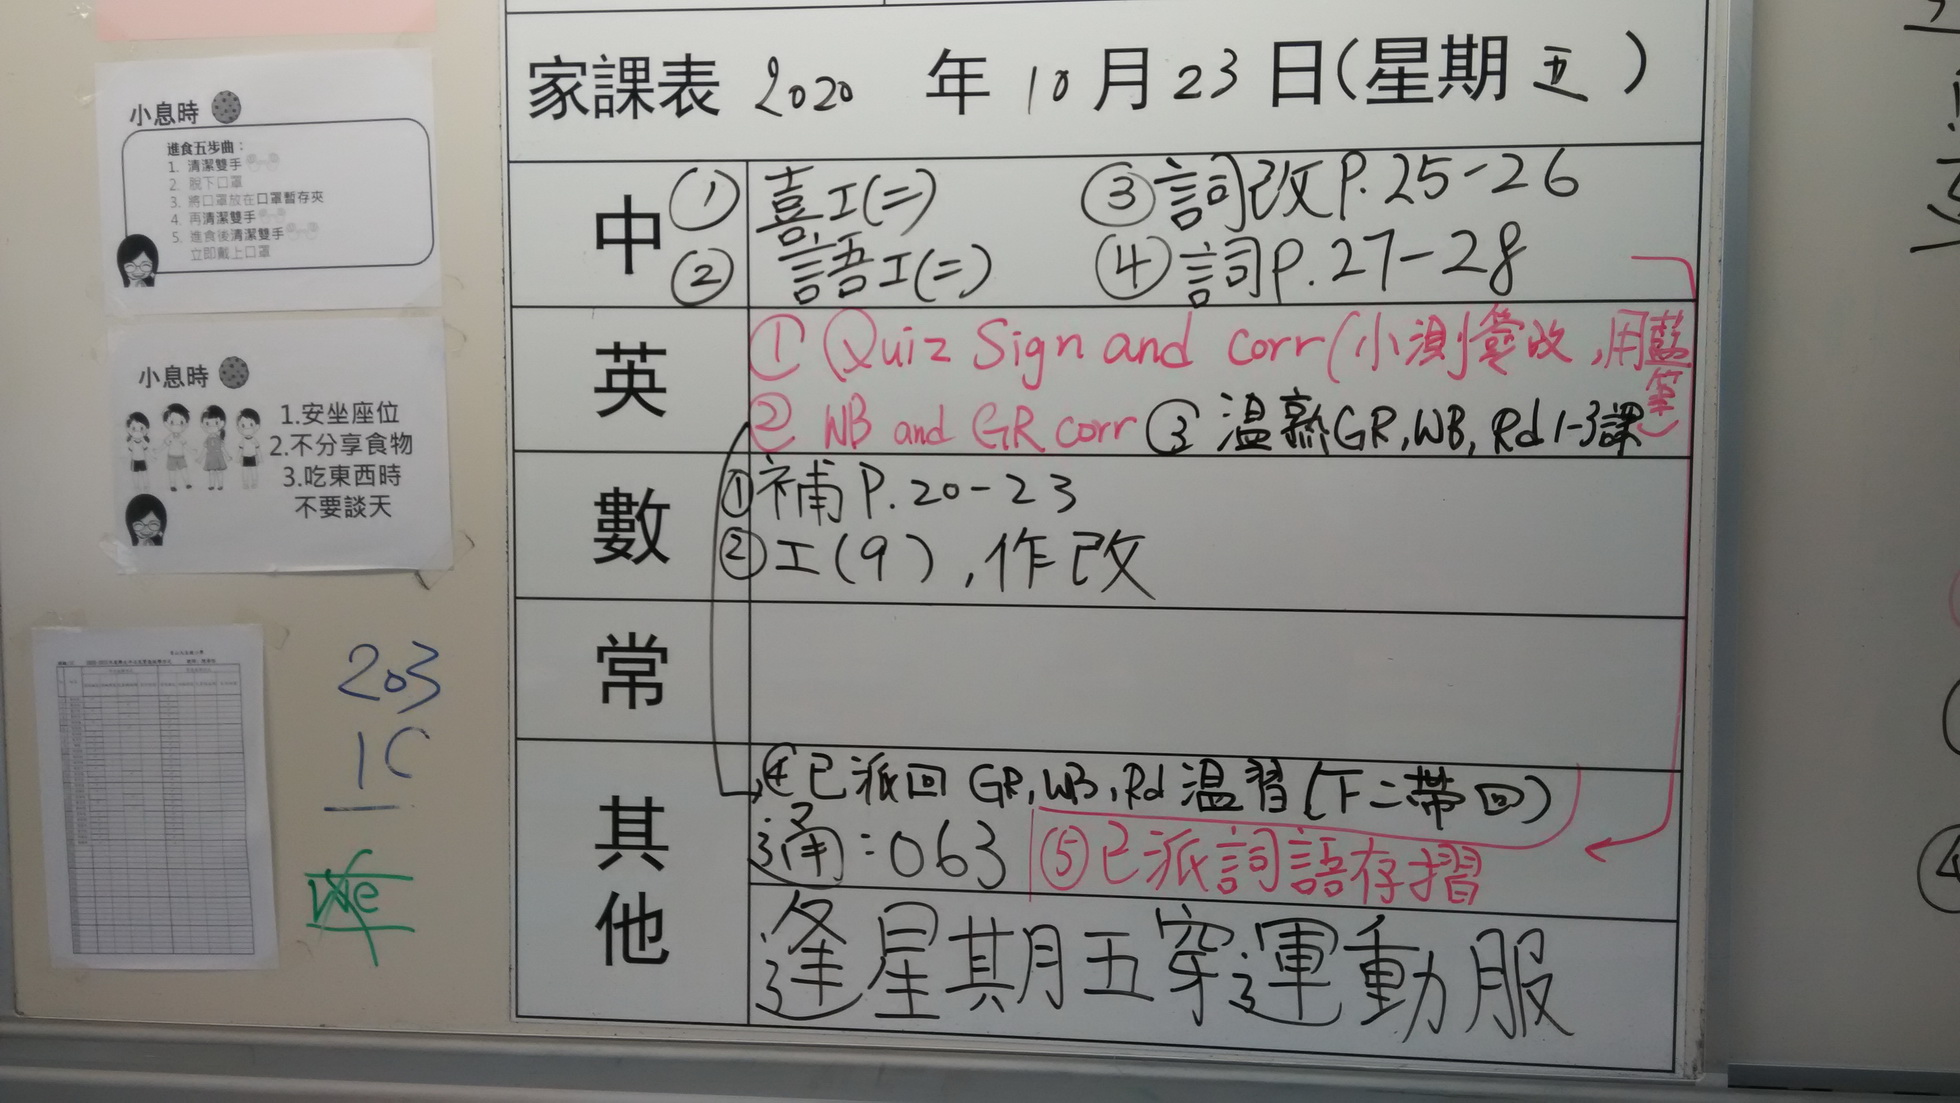 小息時
進食五步曲：
1. 清潔雙手
2. 脫下口罩
3. 將口罩放在口罩暫存夾
4. 再清潔雙手
5. 進食後清潔雙手
立即戴上口罩
小息時
1.安坐座位
2.不分享食物
3.吃東西時
不要談天
203
1C
家課表 2020 年 10 月 23 日(星期 五 )
中 ① 喜工(二) ③ 詞改 P.25-26
② 語工(二) ④ 詞P.27-28
英 ① Quiz Sign and corr (小測簽改,用藍筆)
② WB and GR corr ③ 溫熟GR,WB,Rd 1-3課
數 ① 補 P.20-23
② 工(9),作改
常
其他 ④ 已派回 GR,WB,Rd 溫習 (下二帶回)
通:063 ⑤ 已派詞語存摺
逢星期五穿運動服